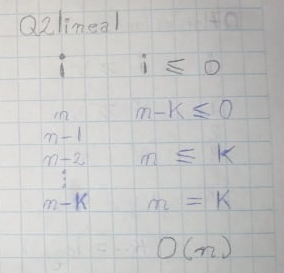 Q2lineal
i i ≤ 0
n n-K ≤ 0
n-1
n-2 n ≤ K
⋮
n-K n = K
O(n)